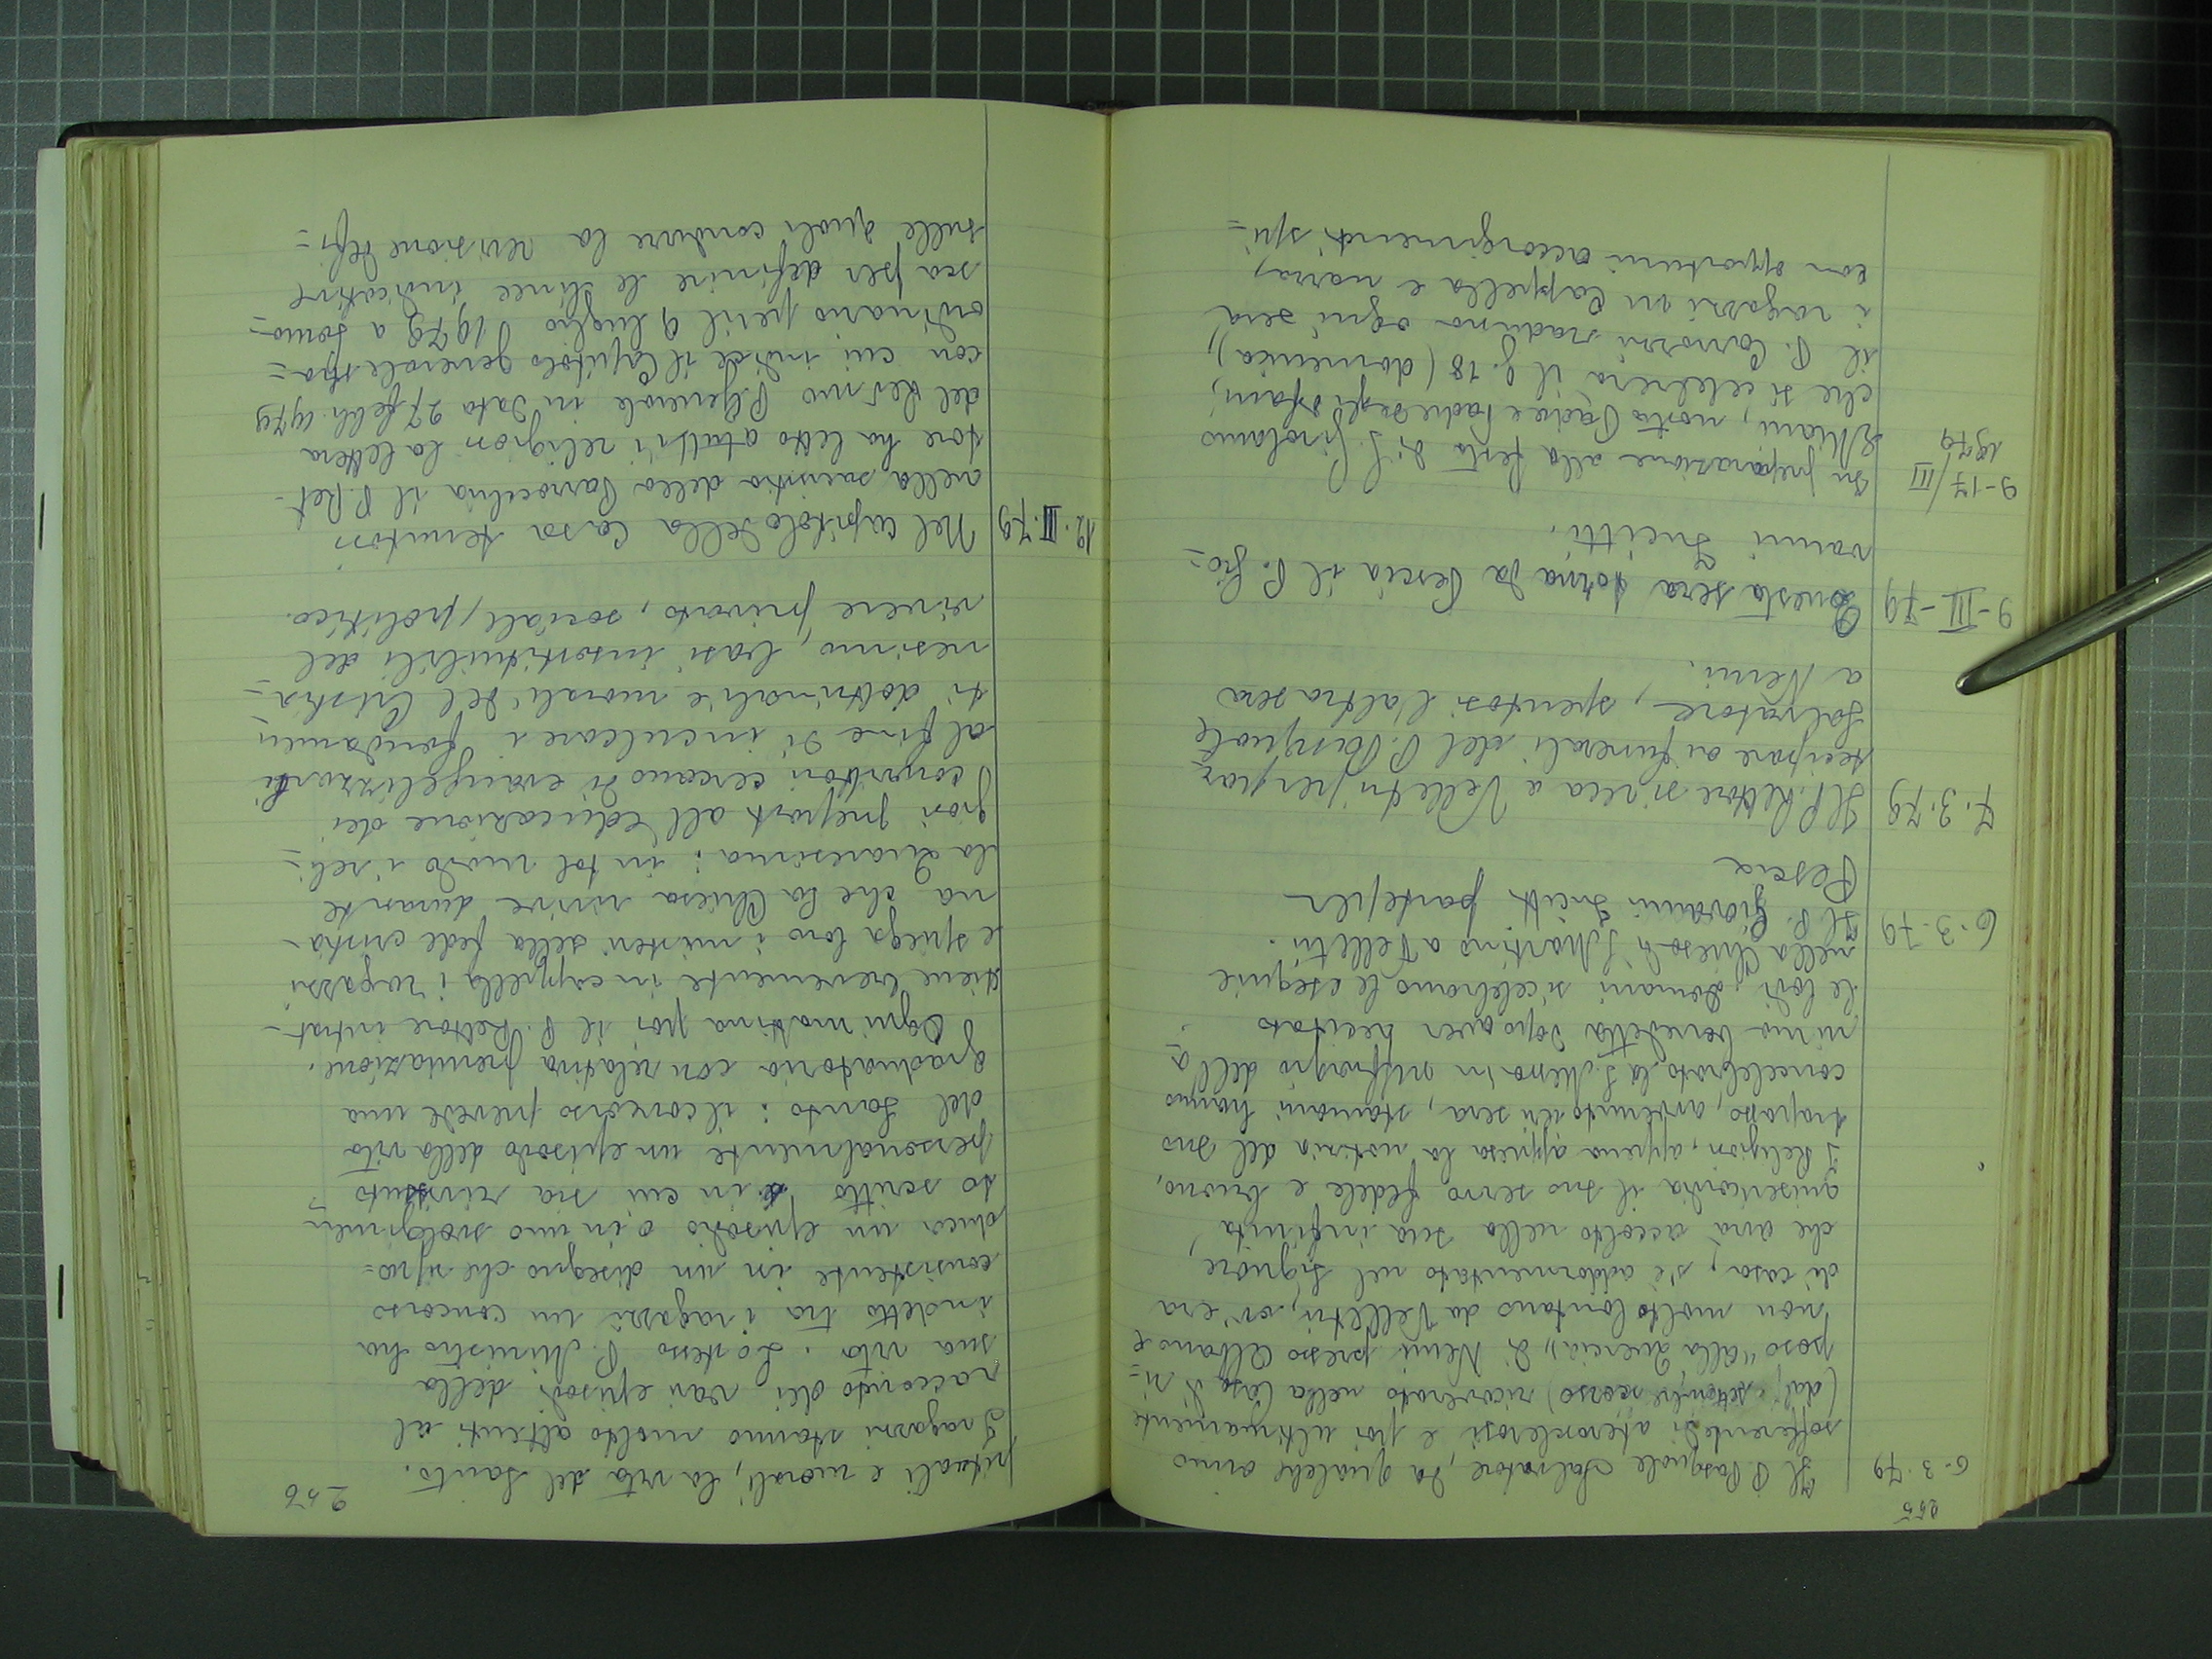 255
6.3.79 Il P. Pasquale Salvatore, da qualche anno
sofferente di aterosclerosi e poi ultimamente
(dal settembre scorso) ricoverato nella Casa di ri=
poso "alla Quercia", di Nemi presso Albano e
non molto lontano da Velletri, ov'era
di casa, s'è addormentato nel Signore,
che avrà accolto nella sua infinita
misericordia il suo servo fedele e buono.
I Religiosi, appena appresa la notizia del suo
trapasso, avvenuto ieri sera, stamani hanno
concelebrato la S. Messa in suffragio dell'a=
nima benedetta dopo aver recitato
le lodi. Domani si celebrano le esequie
nella Chiesa di S. Martino a Velletri.
6.3.79 Il P. Giovanni Incitti parte per
Pescia
7.3.79 Il P. Rettore si reca a Velletri per par=
tecipare ai funerali del P. Pasquale
Salvatore, spentosi l'altra sera
a Nemi.
9-III-79 Questa sera torna da Pescia il P. Gio=
vanni Incitti.
9-17/III
1979 In preparazione alla festa di S. Girolamo
Miani, nostro Padre e Padre degli orfani,
che si celebrerà il g. 18 (domenica),
il P. raduna ogni sera
i ragazzi in Cappella e narra,
con opportuni accorgimenti spi=
256
rituali e morali, la vita del Santo.
I ragazzi stanno molto attenti al
racconto dei vari episodi della
sua vita. Lo stesso P. Ministro ha
indetto tra i ragazzi un concorso
consistente in un disegno che ripro=
duca un episodio o in uno svolgimen=
to scritto in cui sia rivissuto
personalmente un episodio della vita
del Santo: il concorso prevede una
graduatoria con relativa premiazione.
Ogni mattina poi il P. Rettore intrat-
tiene brevemente in cappella i ragazzi
e spiega loro i misteri della fede cristia-
na che la Chiesa rivive durante
la Quaresima: in tal modo i reli=
giosi preposti all'educazione dei
convittori cercano di evangelizzarli
al fine di inculcare i fondamen=
ti dottrinali e morali del Cristia=
nesimo, basi insostituibili del
vivere privato, sociale, politico.
12.III.79 Nel Capitolo della Casa tenutosi
nella sacristia della Parrocchia il P. Ret-
tore ha letto a tutti i religiosi la lettera
del Rev.mo P. Generale in data 27 febb. 1979
con cui indice il Capitolo generale stra=
ordinario per il 9 luglio 1979 a Somo=
sca per definire le linee indicative
sulle quali condurre la revisione defi=